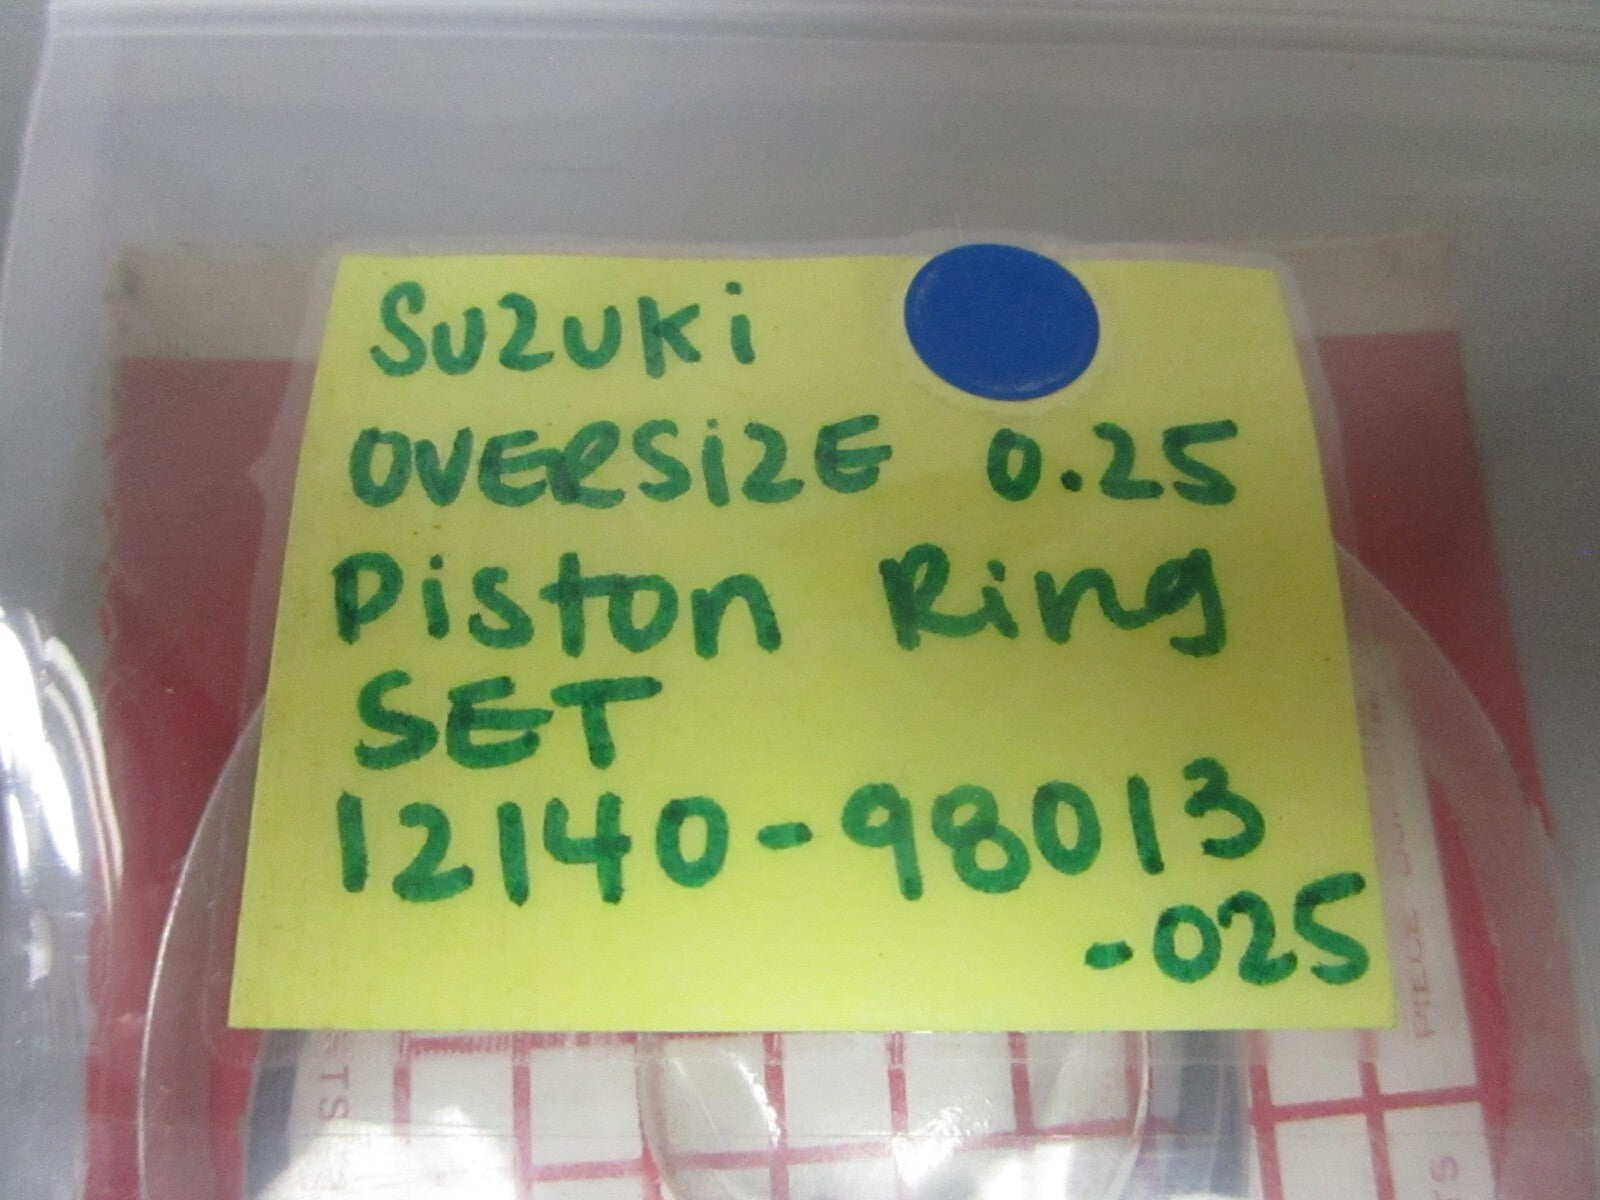 SuzuKi
OVERSiZE 0.25
Piston Ring
SET
12140-98013
-025